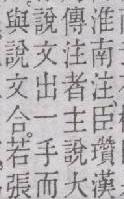 淮南注臣瓚漢
傳注者主說大
說文出一手而
與說文合。若張